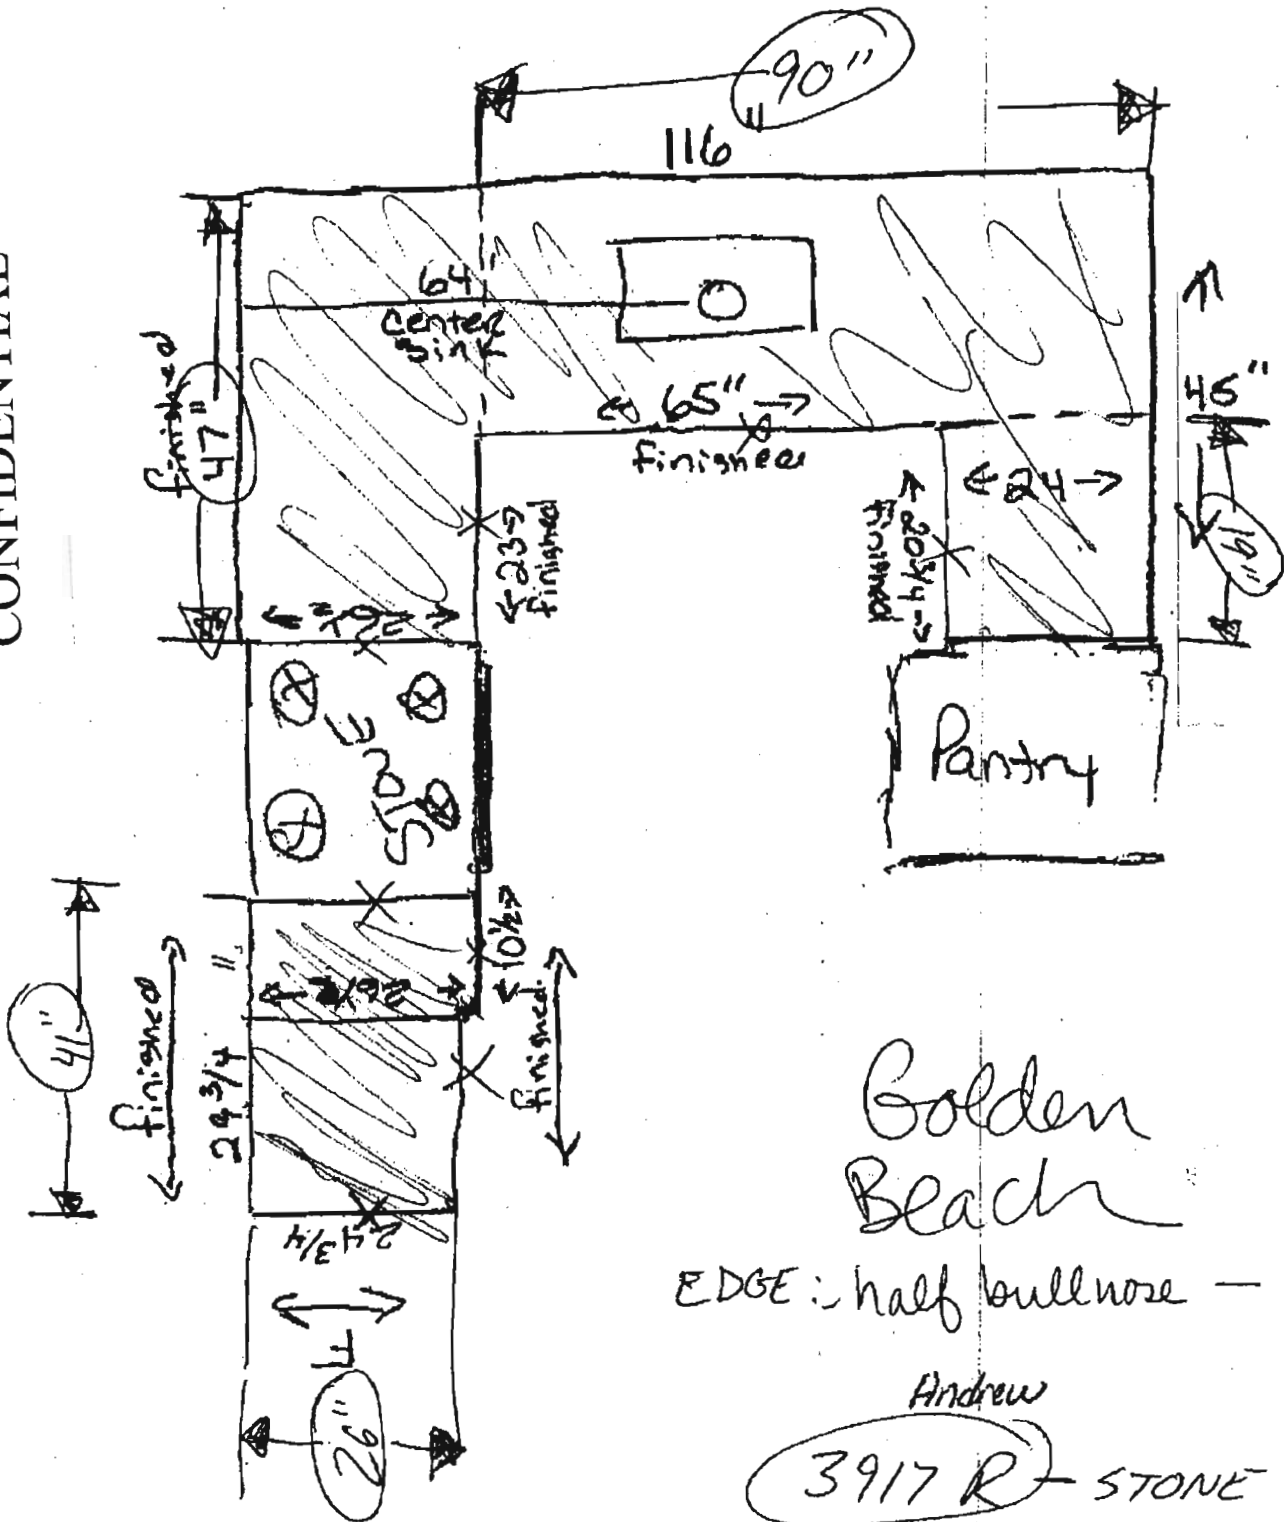 CONFIDENTIAL
90"
116"
64"
center
sink
finished
47"
65"
finished
45"
24
23
finished
20 3/4
finished
19"
STOVE
Pantry
10 1/2
finished
41"
finished
29 3/4"
24 3/4
F
26"
Golden
Beach
EDGE: half bullnose —
Andrew
3917 R - STONE